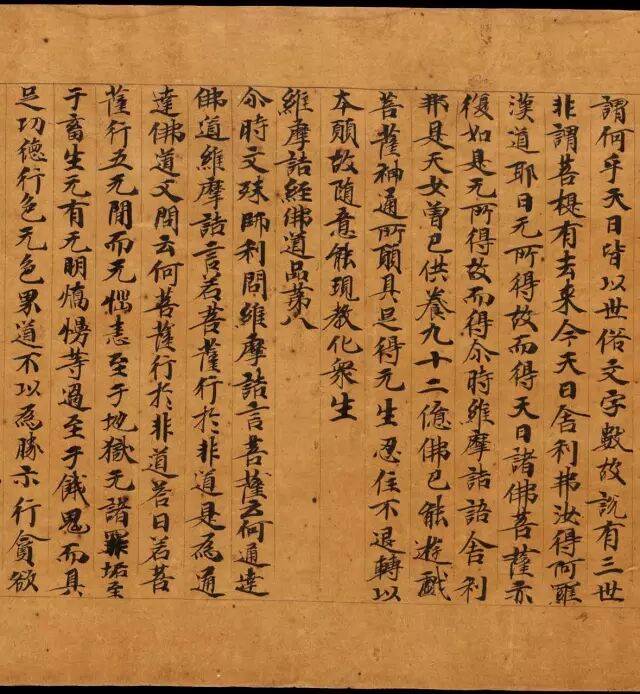 謂何乎天曰皆以世俗文字數故說有三世
非謂菩提有去來今天曰舍利弗汝得阿羅
漢道耶曰无所得故而得天曰諸佛菩薩亦
復如是无所得故而得尒時維摩詰語舍利
弗是天女曾已供養九十二億佛已能遊戲
菩薩神通所願具足得无生忍住不退轉以
本願故隨意能現教化衆生
維摩詰經佛道品第八
尒時文殊師利問維摩詰言菩薩云何通達
佛道維摩詰言若菩薩行於非道是爲通
達佛道又問云何菩薩行於非道荅曰若菩
薩行五无閒而无惱恚至于地獄无諸罪垢至
于畜生无有无明憍慢等過至于餓鬼而具
足功德行色无色界道不以爲勝示行貪欲